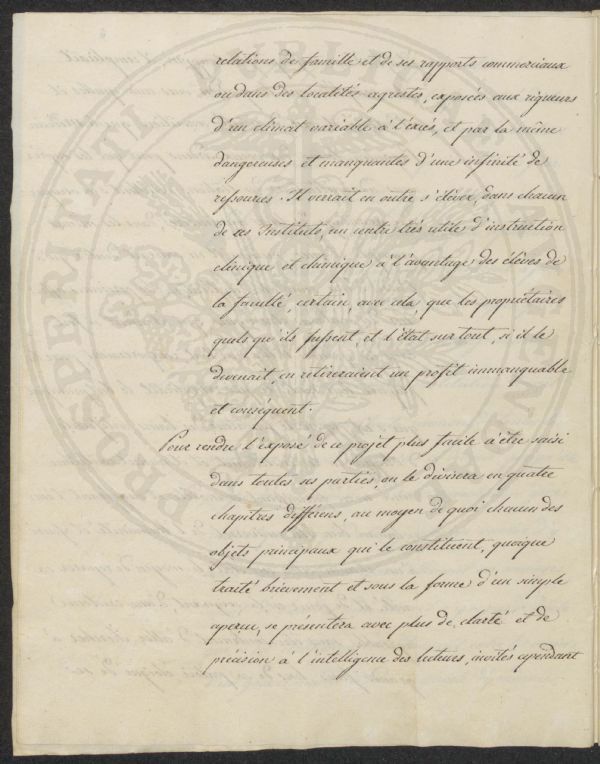 relations de famille et de ses rapports commerciaux
ou dans des localités agrestes, exposées aux rigueurs
d'un climat variable à l'excès, et par la même
dangereuses et manquantes d'une infinité de
ressources. Il verrait en outre s'élever, dans chacun
de ces Instituts, un centre très utile d'instruction
clinique et chimique à l'avantage des élèves de
la faculté, certain, avec cela, que les propriétaires
quels qu'ils fussent, et l'état sur tout, si il le
devenait, en retireraient un profit immanquable
et conséquent.
Pour rendre l'exposé de ce projet plus facile à être saisi
dans toutes ses parties, on le divisera en quatre
chapitres différens, au moyen de quoi chacun des
objets principaux qui le constituent, quoique
traité brièvement et sous la forme d'un simple
aperçu, se présentera avec plus de clarté et de
précision à l'intelligence des lecteurs, invités cependant
PROSPERITATI PUBLICAE